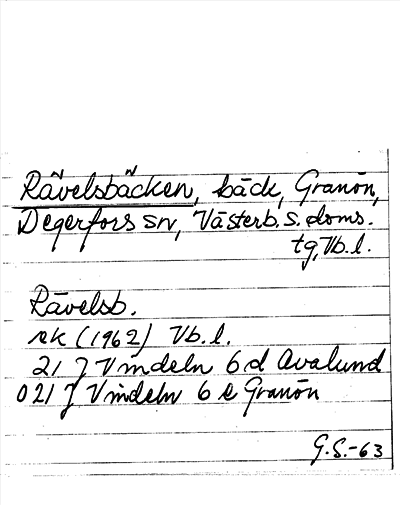 Rävelsbäcken, bäck, Granön,
Degerfors sn, Västerb. s. doms.
tg, Vb.l.
Rävelsb.
rk (1962) Vb.l.
21 J Vindeln 6 d Avalund
021 J Vindeln 6 e Granön
G.S.-63